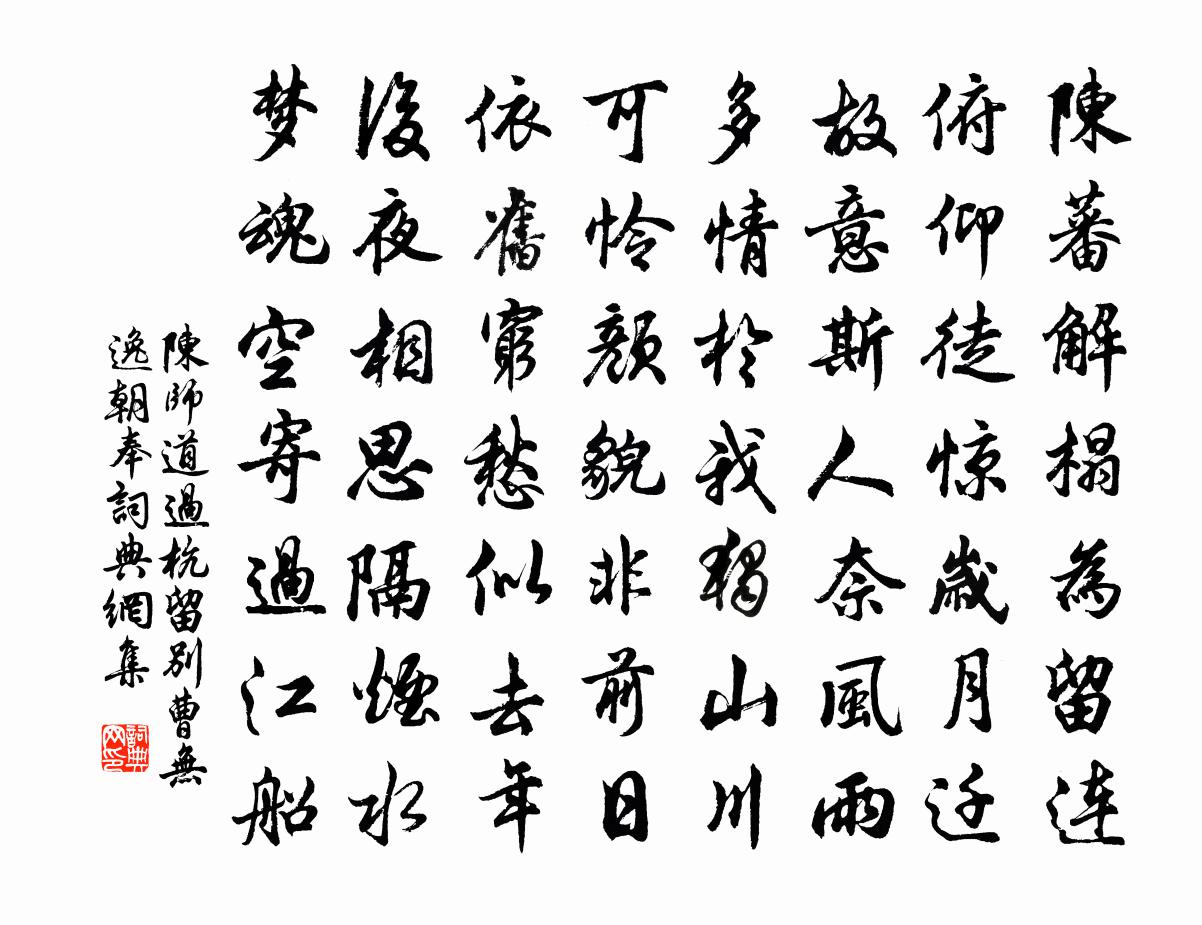 陳蕃解榻為留連
俯仰徒惊歲月迁
故意斯人奈風雨
多情於我獨山川
可怜顏貌非前日
依舊窮愁似去年
後夜相思隔煙水
梦魂空寄過江船
陳師道過杭留別曹無
逸朝奉詞典網集
詞典
网印